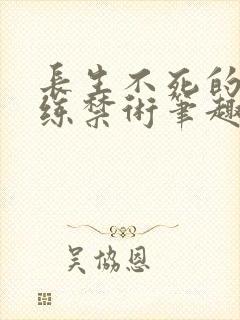 長生不死的
练禁術筆趣
吴協恩